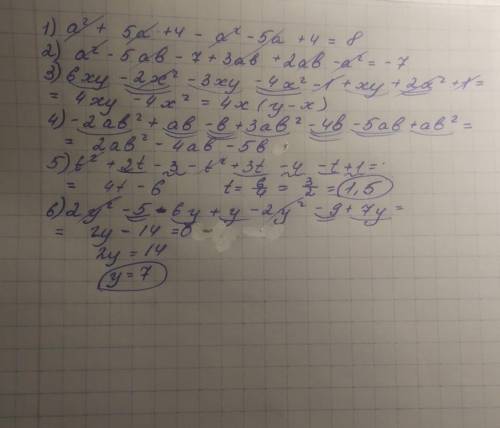 1) a² + 5a + 4 - a² - 5a + 4 = 8
2) a² - 5ab - 7 + 3ab + 2ab - a² = -7
3) 6xy - 2x² - 3xy - 4x² - 1 + xy + 2x² + 1 =
= 4xy - 4x² = 4x(y-x)
4) -2ab² + ab - b + 3ab² - 4b - 5ab + ab² =
= 2ab² - 4ab - 5b
5) t² + 2t - 3 - t² + 3t - 4 - t + 1 =
= 4t - 6 t = 6/4 = 3/2 = 1,5
6) 2y² - 5 - 6y + y - 2y² - 9 + 7y =
= 2y - 14 = 0
2y = 14
y = 7